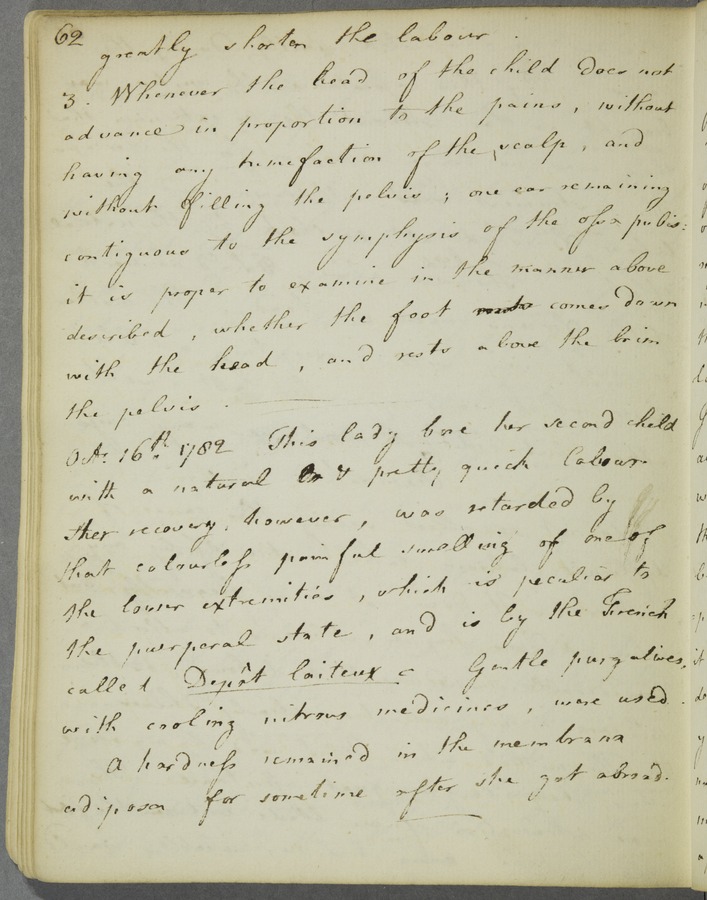 62
greatly shorten the labour.
3. Whenever the head of the child does not
advance in proportion to the pains, without
having any tumefaction of the scalp, and
without filling the pelvis; one ear remaining
contiguous to the symphysis of the ossa pubis:
it is proper to examine in the manner above
described, whether the foot comes down
with the head, and rests above the brim
the pelvis.
Oct. 16th. 1782 This lady bore her second child
with a natural & pretty quick labour.
Her recovery, however, was retarded by
that colourless painful swelling of one of
the lower extremities, which is peculiar to
the puerperal state, and is by the French
called Depôt laiteux. Gentle purgatives,
with cooling nitrous medicines, were used.
A hardness remained in the membrana
adiposa for sometime after she got abroad.